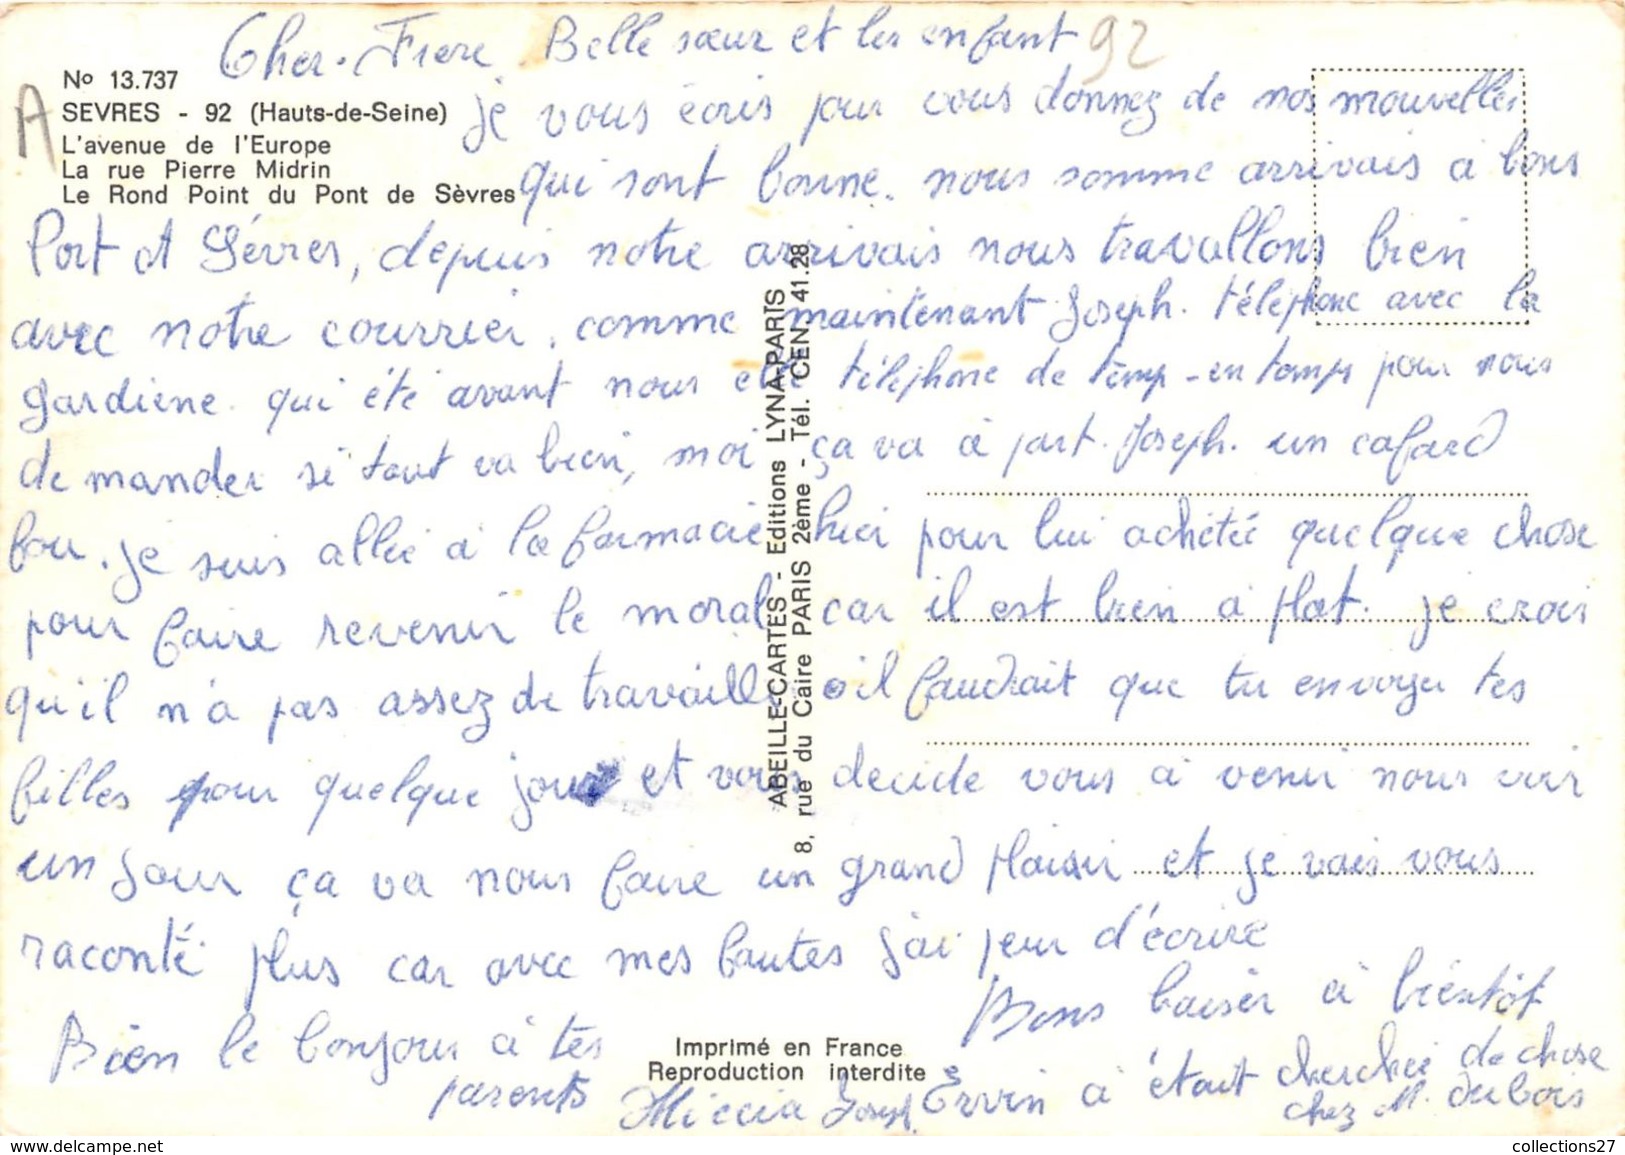 Cher. Frere. Belle sœur et les enfant 92
A
No 13.737
SEVRES - 92 (Hauts-de-Seine)
L'avenue de l'Europe
La rue Pierre Midrin
Le Rond Point du Pont de Sèvres
je vous écris pour vous donnez de nos mouvelles
qui sont bonne. nous somme arrivais à bons
Port à Sévres, depuis notre arrivais nous travallons bien
avec notre courrier. comme maintenant Joseph. téléphone avec la
gardiene qui été avant nous elle téléphone de temp-en temps pour nous
de mander si tout va bien, moi ça va à part Joseph. un cafard
fou. je suis allée à la farmacie hier pour lui achetée quelque chose
pour faire revenir le moral car il est bien à plat. je crois
qu'il n'a pas assez de travaille il faudrait que tu envoyer tes
filles pour quelque jour et vous decide vous à venir nous voir
un jour ça va nous faire un grand plaisir et je vais vous
raconté plus car avec mes fautes j'ai peur d'écrire
Bons baiser à bientôt
Bien le bonjour à tes
parents
Joseph
Ervin à était cherchei de chose
chez M. dubois
ABEILLE-CARTES - Editions LYNA-PARIS
8, rue du Caire PARIS 2ème - Tél. CEN. 41.28
Imprimé en France
Reproduction interdite
collections27